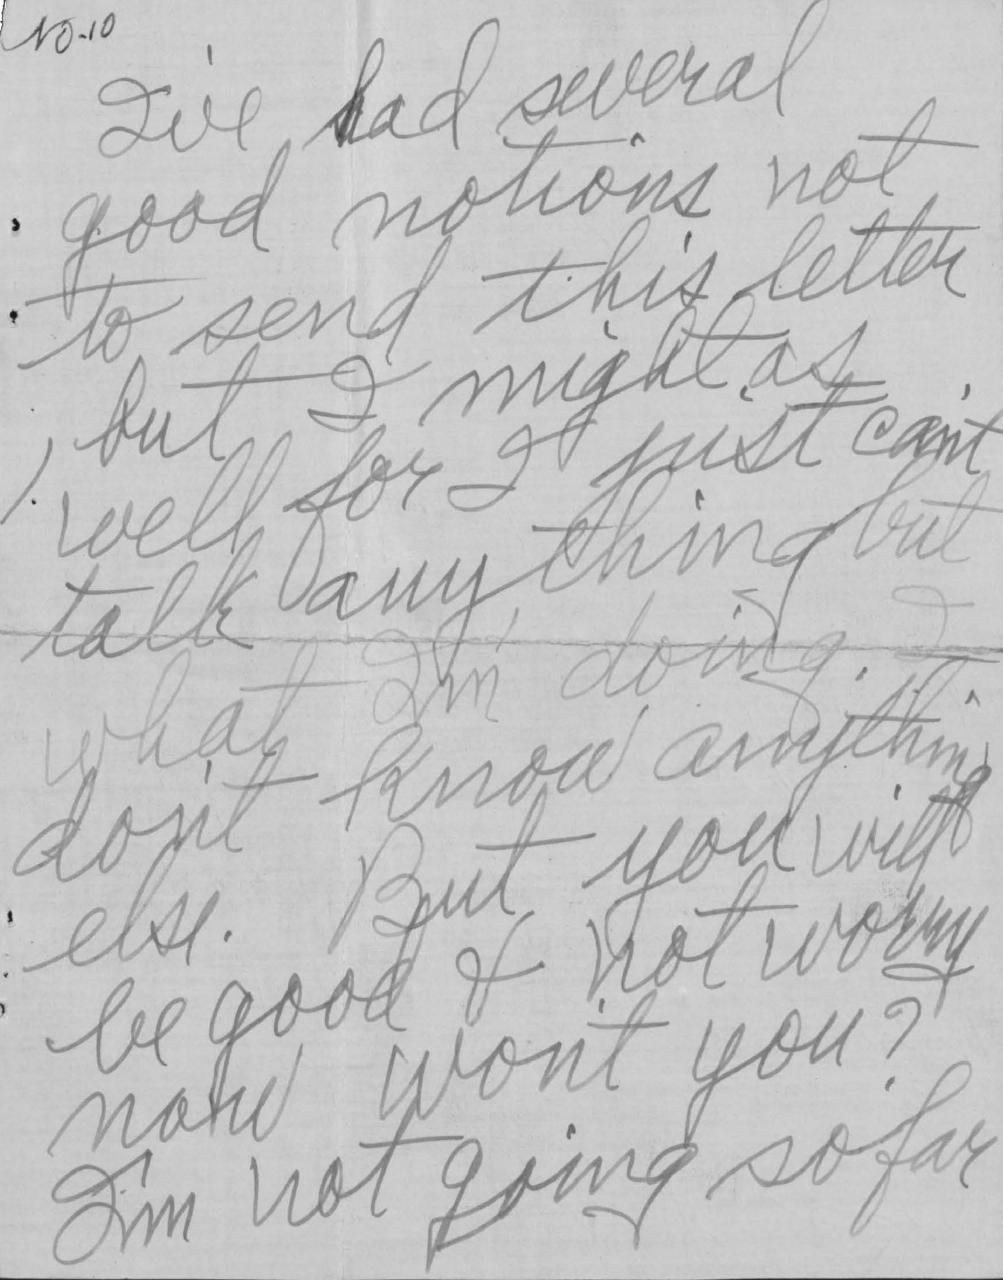 NO-10
I've had several
good notions not
to send this letter
but I might as
well for I just can't
talk anything but
what I'm doing. I
don't know anything
else. But you will
be good & not worry
now won't you?
I'm not going so far